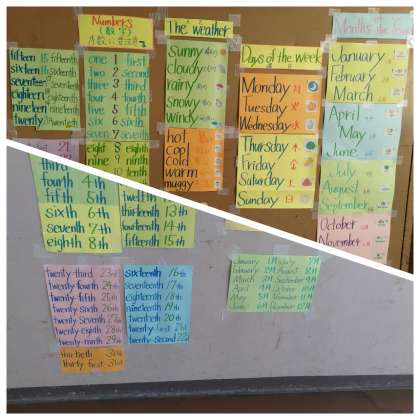 Numbers
(数字)
fifteen 15 fifteenth
sixteen 16 sixteenth
seventeen seventeenth
eighteen eighteenth
nineteen nineteenth
twenty twentieth
one 1 first
two 2 second
three 3 third
four 4 fourth
five 5 fifth
six 6 sixth
seven 7 seventh
eight 8 eighth
nine 9 ninth
ten 10 tenth
The weather
sunny
cloudy
rainy
snowy
windy
hot
cool
cold
warm
muggy
Days of the week
Monday 月
Tuesday 火
Wednesday 水
Thursday 木
Friday 金
Saturday 土
Sunday 日
Months
January
February
March
April
May
June
July
August
September
October
November
third
fourth 4th
fifth 5th
sixth 6th
seventh 7th
eighth 8th
twelfth
thirteenth 13th
fourteenth 14th
fifteenth 15th
twenty-third 23rd
twenty-fourth 24th
twenty-fifth 25th
twenty-sixth 26th
twenty-seventh 27th
twenty-eighth 28th
twenty-ninth 29th
thirtieth 30th
thirty first 31st
sixteenth 16th
seventeenth 17th
eighteenth 18th
nineteenth 19th
twentieth 20th
twenty first 21st
twenty-second 22nd
January 1月 July 7月
February 2月 August 8月
March 3月 September 9月
April 4月 October 10月
May 5月 November 11月
June 6月 December 12月